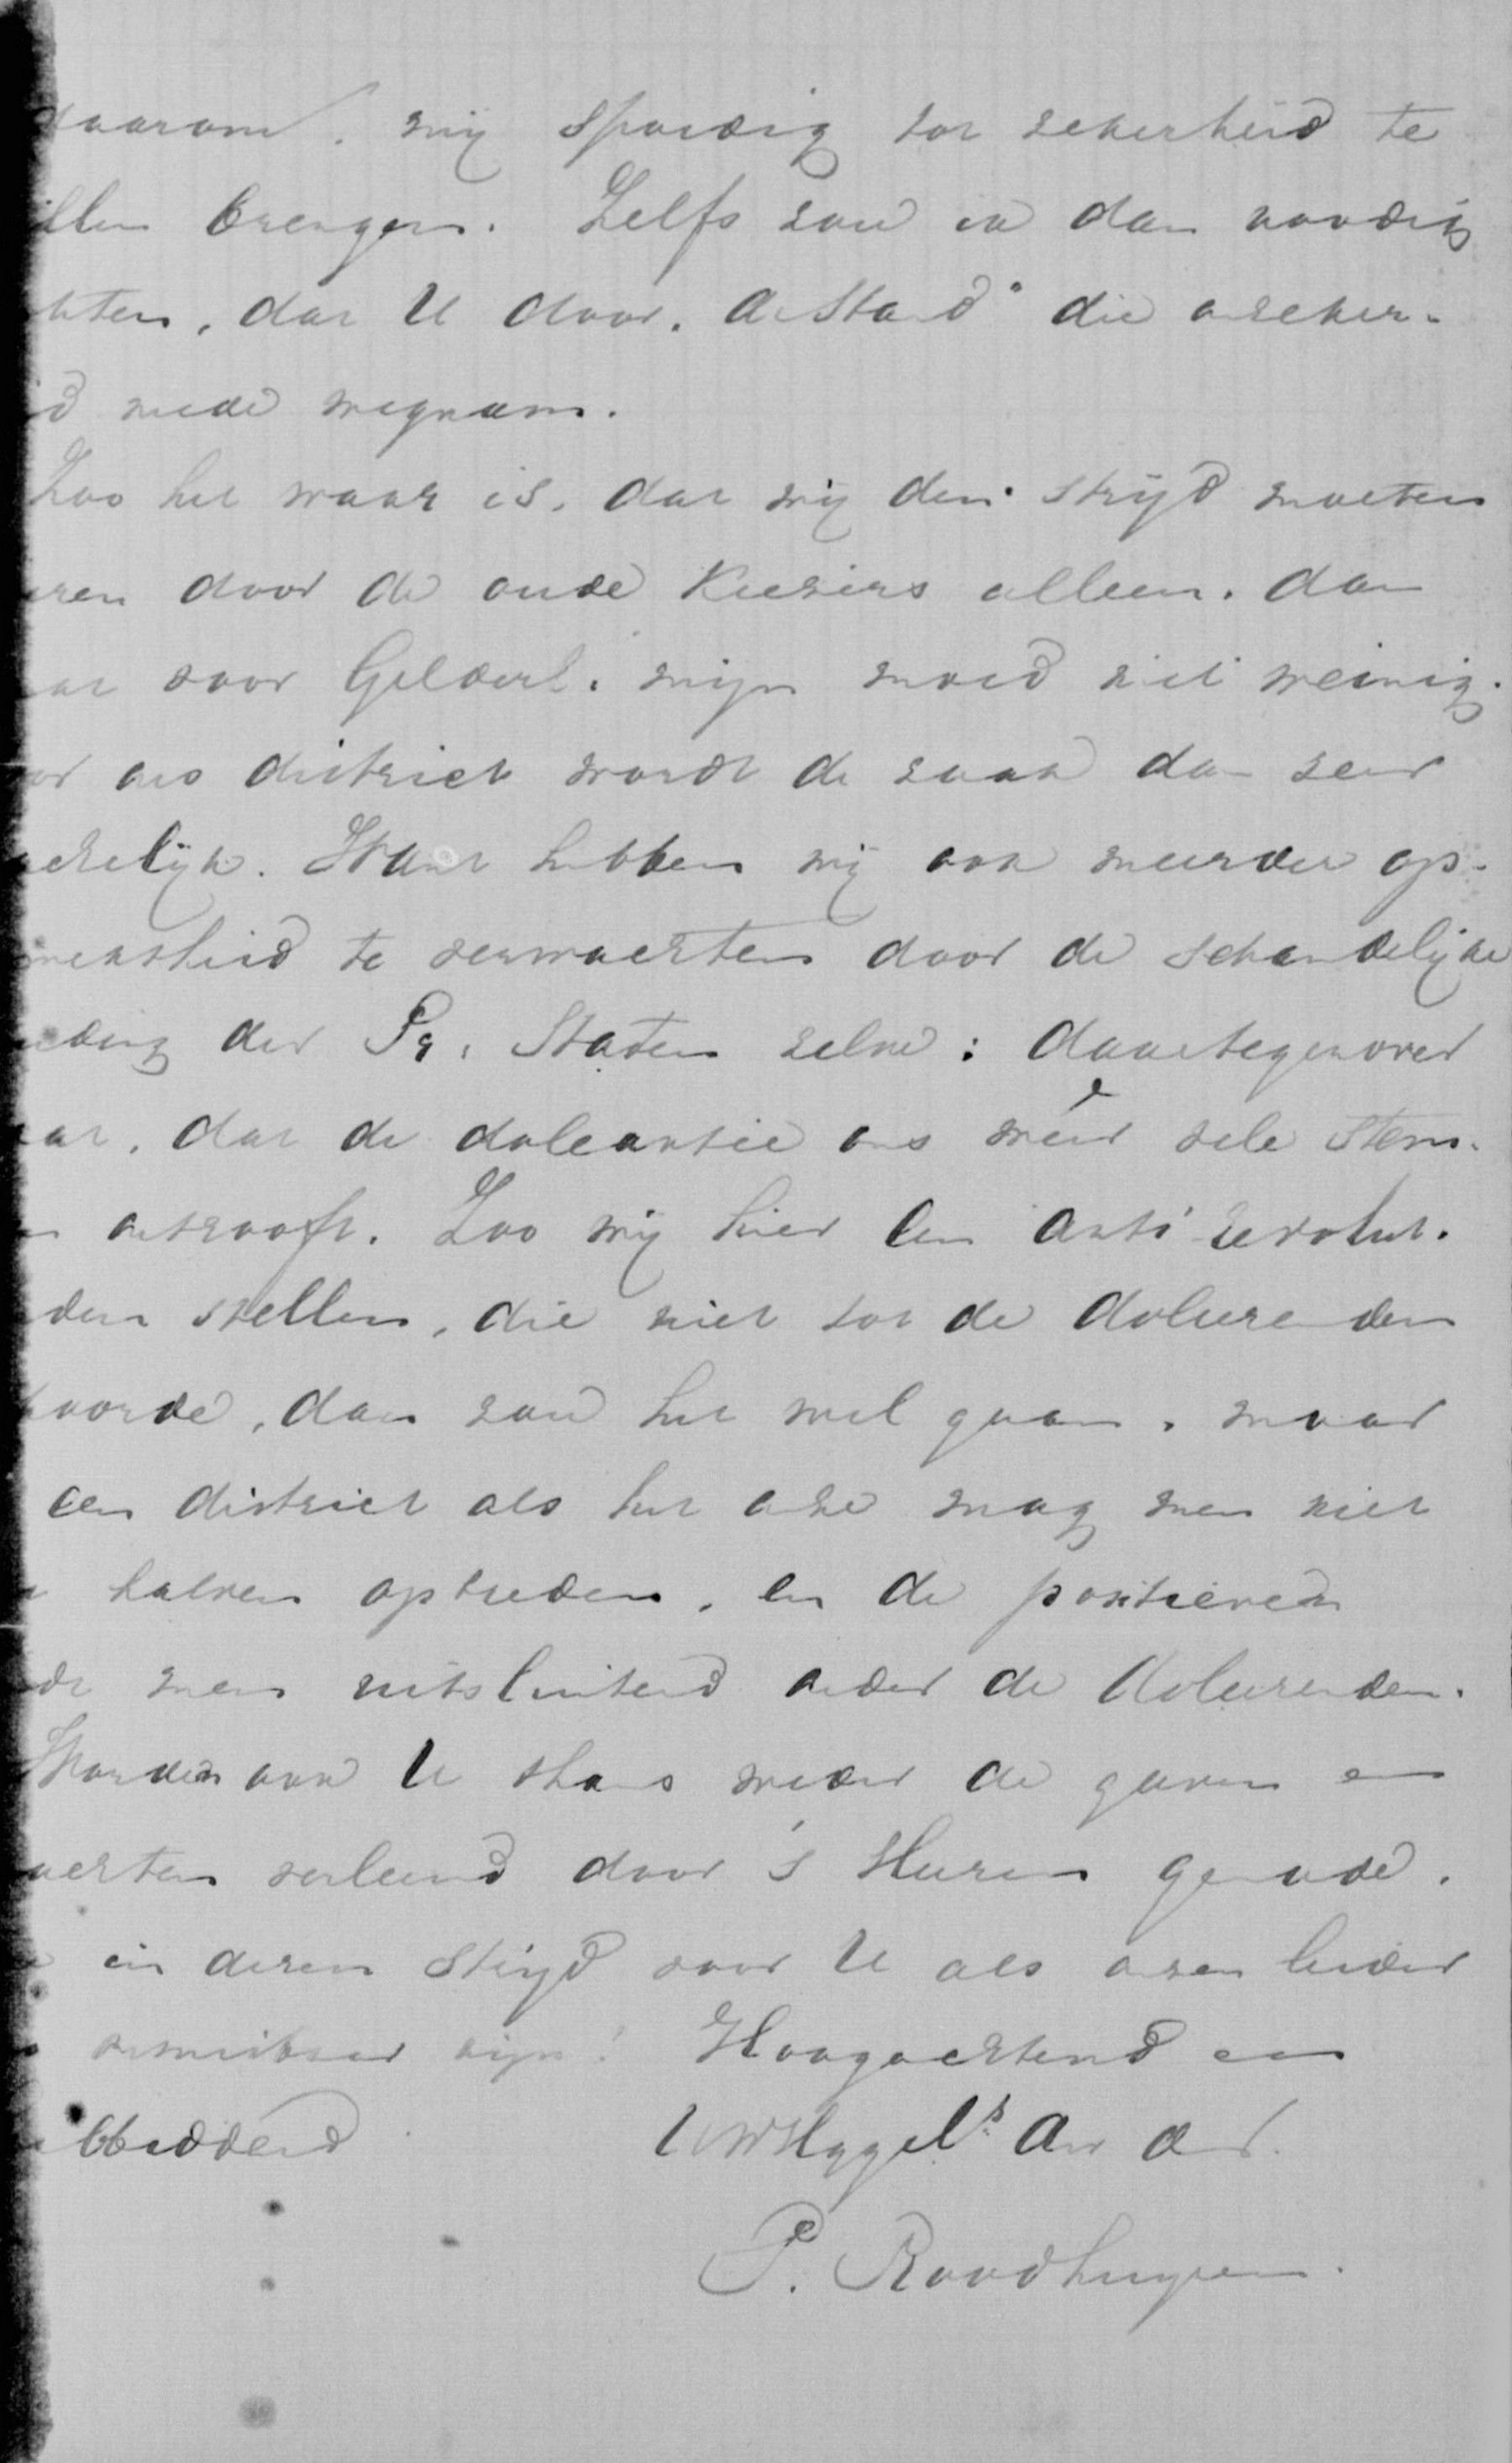 daarom, mij spoedig tot zekerheid te
illen brengen. Zelfs zou ik dan noodig
chten, dat U door "de Stand" die onzeker-
id mede wegnam.
Zoo het waar is, dat wij den strijd moeten
eren door de oude kiezers alleen, dan
voor Gelderl. mijn moed niet weinig.
or ons district wordt de zaak dan zeer
Want hebben wij ook meerder op-
mkstheid te verwachten door de schandelijke
ding der Pr. Staten zelve: daartegenover
at, dat de doleantie ons weer vele stem-
n ontrooft. Zoo wij hier een anti-revolut.
den stellen, die niet tot de doleerenden
hoorde, dan zou het wel gaan, maar
een district als het onze mag men niet
halven optreden, en de positieven
dt men uitsluitend onder de doleerenden.
Worden ook U thans weder de gaven en
achten verleend door 's Heeren genade,
in dezen strijd voor U als onzen leider
onmisbaar zijn! Hoogachtend en
bbiddend UwHggel. dw. dr.
P. Roodhuyzen.